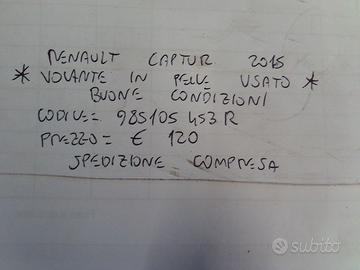 RENAULT CAPTUR 2015
* VOLANTE IN PELLE USATO *
BUONE CONDIZIONI
CODICE= 985105453R
PREZZO= € 120
SPEDIZIONE COMPRESA
subito